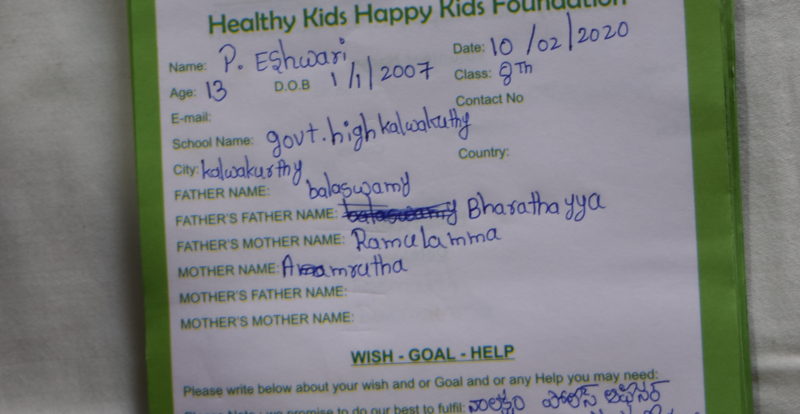 Healthy Kids Happy Kids Foundation
Name: P. Eshwari Date: 10/02/2020
Age: 13 D.O.B 1/1/2007 Class: 8Th
E-mail: Contact No
School Name: govt. high kalwakuthy
City: kalwakurthy Country:
FATHER NAME: balaswamy
FATHER'S FATHER NAME: balaswamy Bharathayya
FATHER'S MOTHER NAME: Ramulamma
MOTHER NAME: Amrutha
MOTHER'S FATHER NAME:
MOTHER'S MOTHER NAME:
WISH - GOAL - HELP
Please write below about your wish and or Goal and or any Help you may need:
promise to do our best to fulfil: పోలీస్